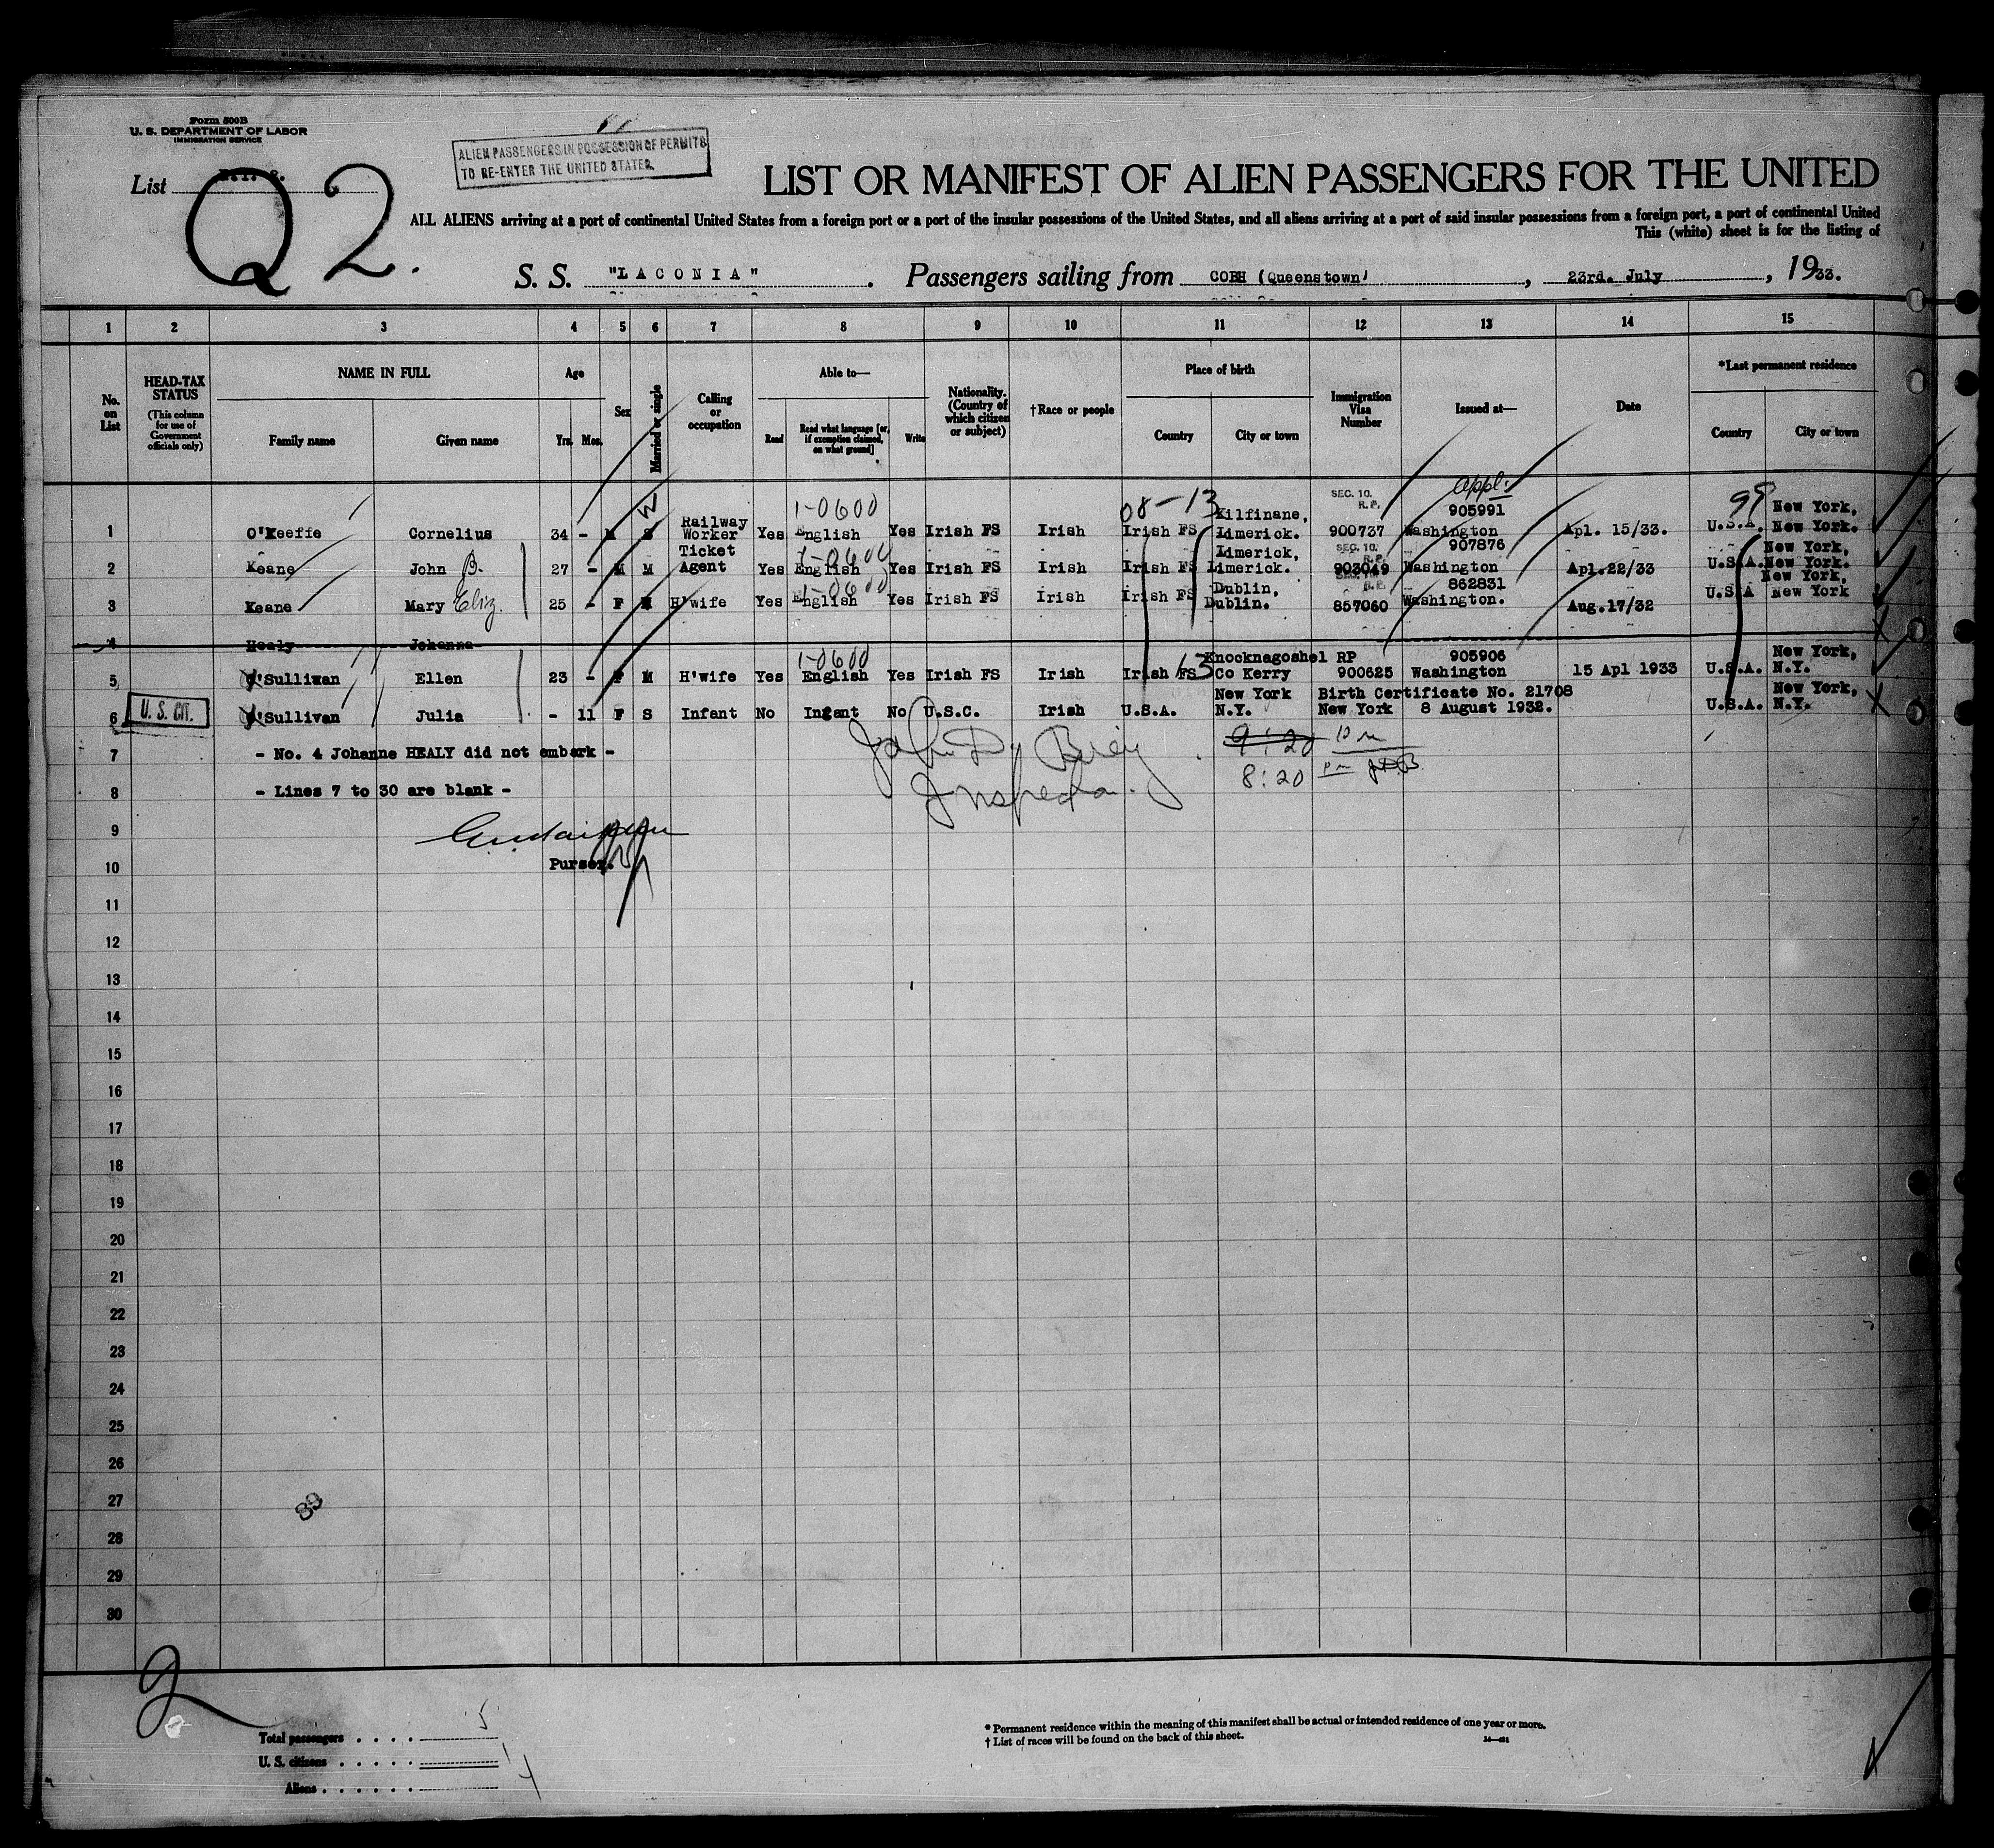 Form 500B
U. S. DEPARTMENT OF LABOR
IMMIGRATION SERVICE
ALIEN PASSENGERS IN POSSESSION OF PERMITS
TO RE-ENTER THE UNITED STATES
List
Q 2.
LIST OR MANIFEST OF ALIEN PASSENGERS FOR THE UNITED
ALL ALIENS arriving at a port of continental United States from a foreign port or a port of the insular possessions of the United States, and all aliens arriving at a port of said insular possessions from a foreign port, a port of continental United
This (white) sheet is for the listing of
S. S. "LACONIA". Passengers sailing from COBH (Queenstown), 23rd. July, 1933.
1 2 3 4 5 6 7 8 9 10 11 12 13 14 15
No. on List
HEAD-TAX STATUS
(This column for use of Government officials only)
NAME IN FULL
Family name Given name
Age
Yrs. Mos.
Sex
Married or single
Calling or occupation
Able to—
Read Read what language [or, if exemption claimed, on what ground] Write
Nationality. (Country of which citizen or subject)
†Race or people
Place of birth
Country City or town
Immigration Visa Number
Issued at—
Date
*Last permanent residence
Country City or town
1-0600 08-13 SEC. 10. R.P. Appl. 905991 98
1 O'Keeffe Cornelius 34 - M S Railway Worker Yes English Yes Irish FS Irish Irish FS Kilfinane, Limerick. 900737 Washington Apl. 15/33. U.S.A. New York, New York.
1-0600 SEC. 10. R.P. 907876
2 Keane John B. 27 - M M Ticket Agent Yes English Yes Irish FS Irish Irish FS Limerick, Limerick. 903049 Washington Apl.22/33 U.S.A. New York, New York.
1-0600 862831
3 Keane Mary Eliz. 25 - F M H'wife Yes English Yes Irish FS Irish Irish FS Dublin, Dublin. 857060 Washington. Aug.17/32 U.S.A New York, New York
4 Healy Johanna
1-0600 13 905906
5 O'Sullivan Ellen 23 - F M H'wife Yes English Yes Irish FS Irish Irish FS Knocknagoshel Co Kerry RP 900625 Washington 15 Apl 1933 U.S.A. New York, N.Y.
6 U. S. CIT. O'Sullivan Julia - 11 F S Infant No Infant No U.S.C. Irish U.S.A. New York N.Y. Birth Certificate No. 21708 New York 8 August 1932. U.S.A. New York, N.Y.
7 - No. 4 Johanne HEALY did not embark -
9:20 pm
8 - Lines 7 to 30 are blank -
Inspector.
8:20 pm
9
Purser.
10
11
12
13
14
15
16
17
18
19
20
21
22
23
24
25
26
27
89
28
29
30
2
Total passengers . . . . 5
U. S. citizens . . . . . 1
Aliens . . . . . . 4
* Permanent residence within the meaning of this manifest shall be actual or intended residence of one year or more.
† List of races will be found on the back of this sheet.